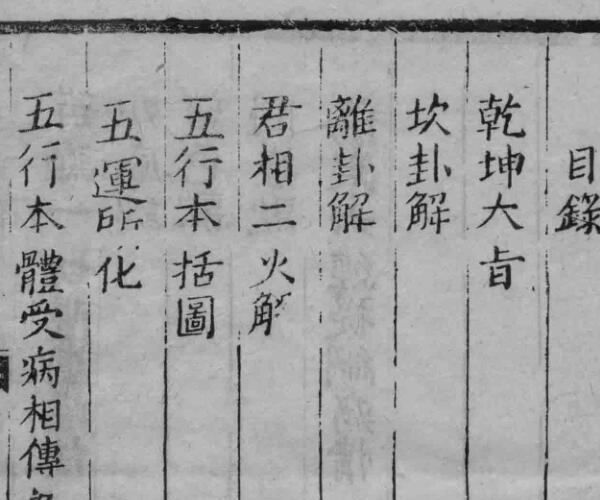 目錄
乾坤大旨
坎卦解
離卦解
君相二火解
五行本括圖
五運所化
五行本體受病相傳